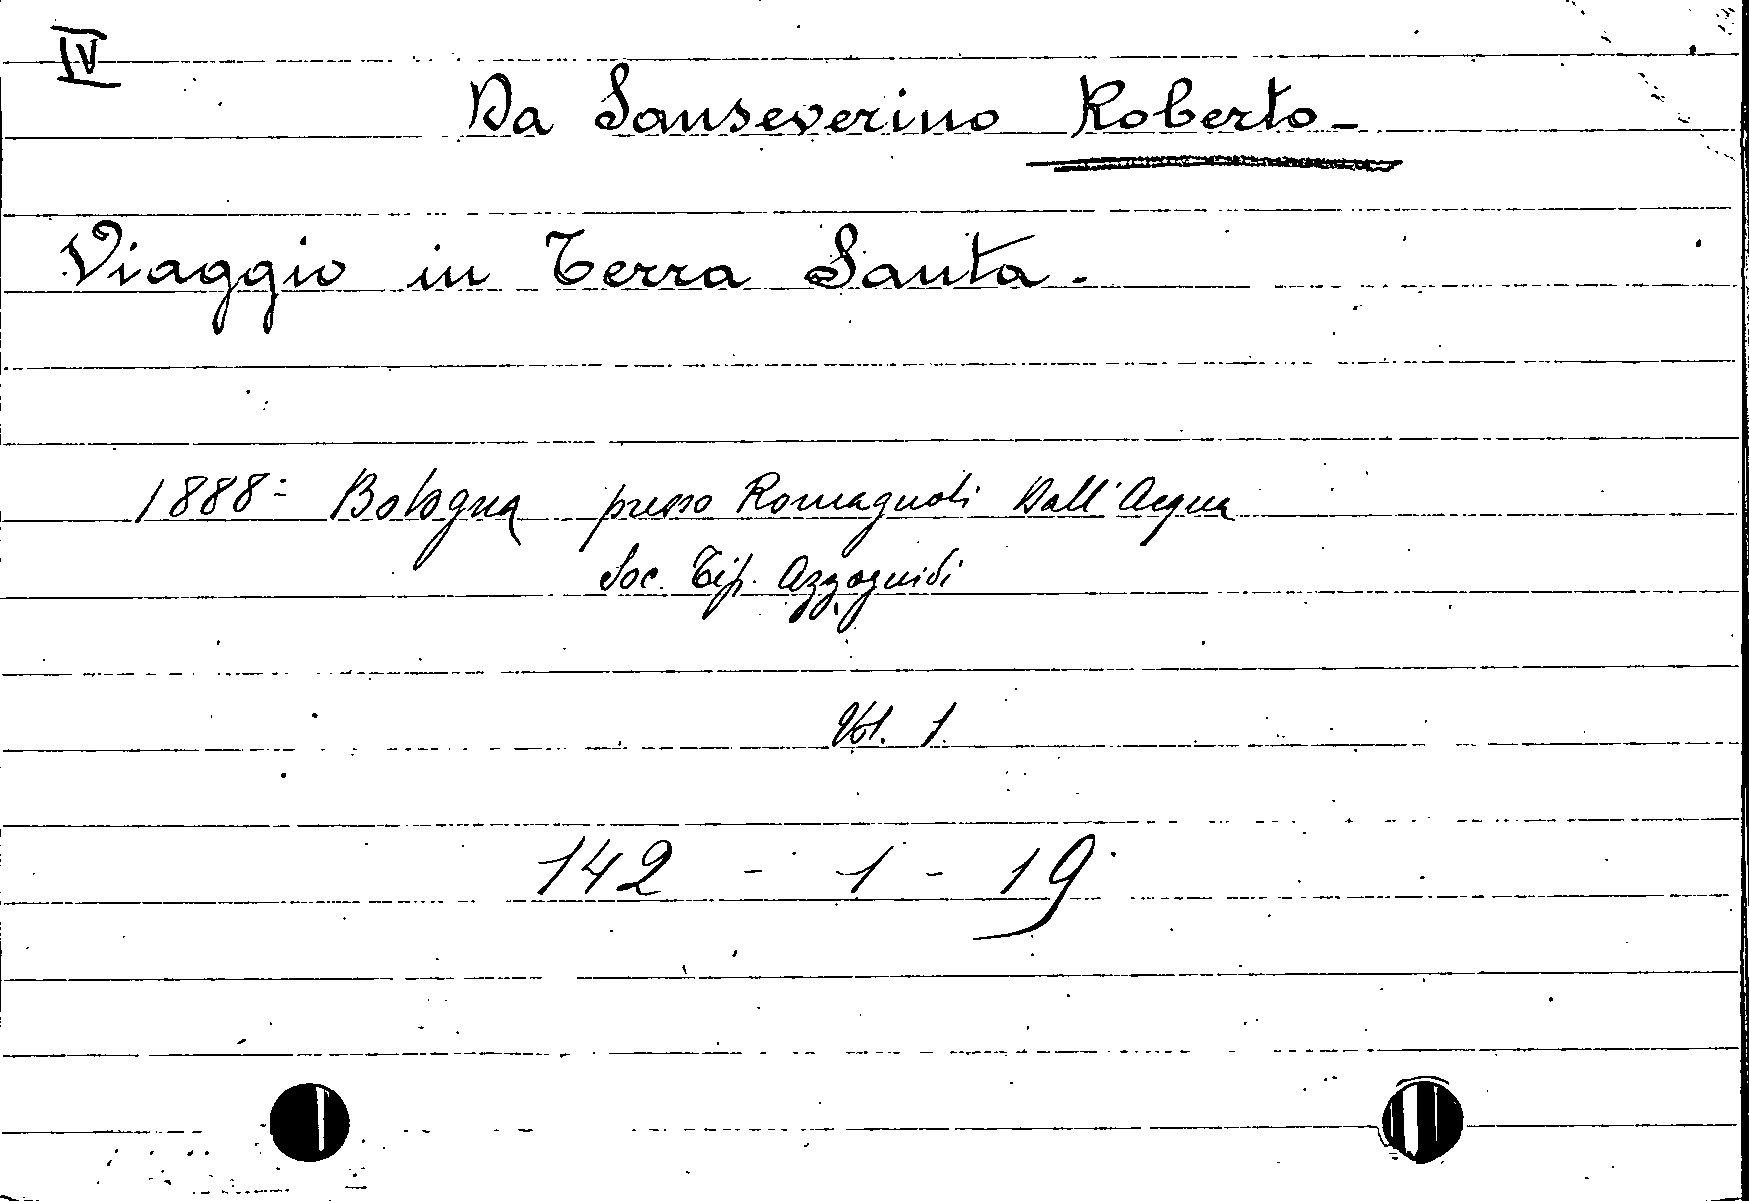 IV
Da Sanseverino Roberto -
Viaggio in Terra Santa.
1888 = Bologna presso Romagnoli Dall'Acqua
Soc. Tip. Azzoguidi
Vol. 1.
142 - 1 - 19